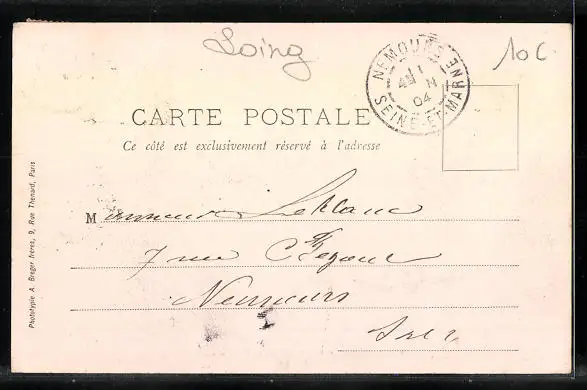 Loing
10 C
NEMOURS
11
JN
04
SEINE-ET-MARNE
CARTE POSTALE
Ce côté est exclusivement réservé à l'adresse
Monsieur Leblanc
7 rue
Nemours
Phototypie A. Breger frères, 9, Rue Thénard, Paris